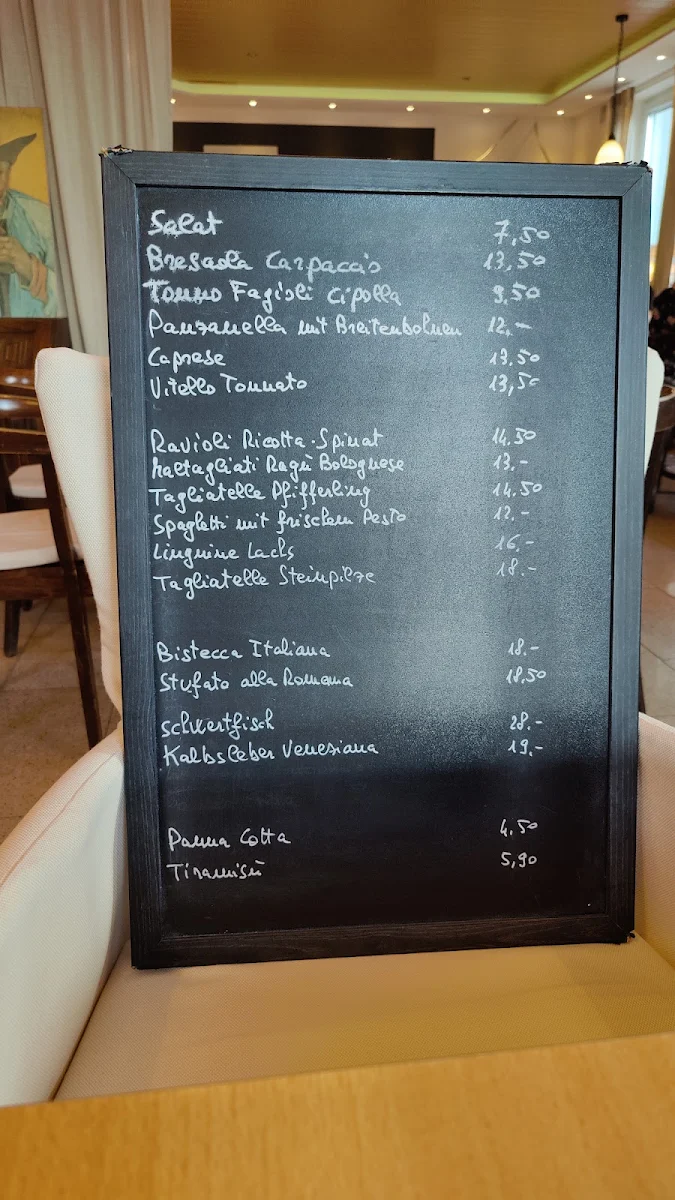 Salat 7,50
Bresaola Carpaccio 13,50
Tonno Fagioli Cipolla 9,50
Panzanella mit Breitenbohnen 12,-
Caprese 13,50
Vitello Tonnato 13,50
Ravioli Ricotta-Spinat 14.50
Maltagliati Ragù Bolognese 13.-
Tagliatelle Pfifferling 14.50
Spaghetti mit frischem Pesto 12.-
Linguine Lachs 16,-
Tagliatelle Steinpilze 18.-
Bistecca Italiana 18.-
Stufato alla Romana 18,50
Schwertfisch 28.-
Kalbsleber Veneziana 19,-
Panna Cotta 4,50
Tiramisù 5,90